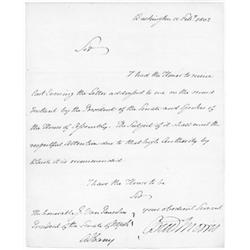 Washington 11 Feb.y 1802
Sir
I had the Honor to receive
last Evening the Letter addressed to me on the second
Instant by the President of the Senate and Speaker of
the House of Assembly. The Subject of it shall meet the
respectful Attention due to that high Authority by
which it is recommended
I have the Honor to be
Sir
The honorable J. Van
President of the Senate of
Albany
your obedient Servant
Gouv Morris